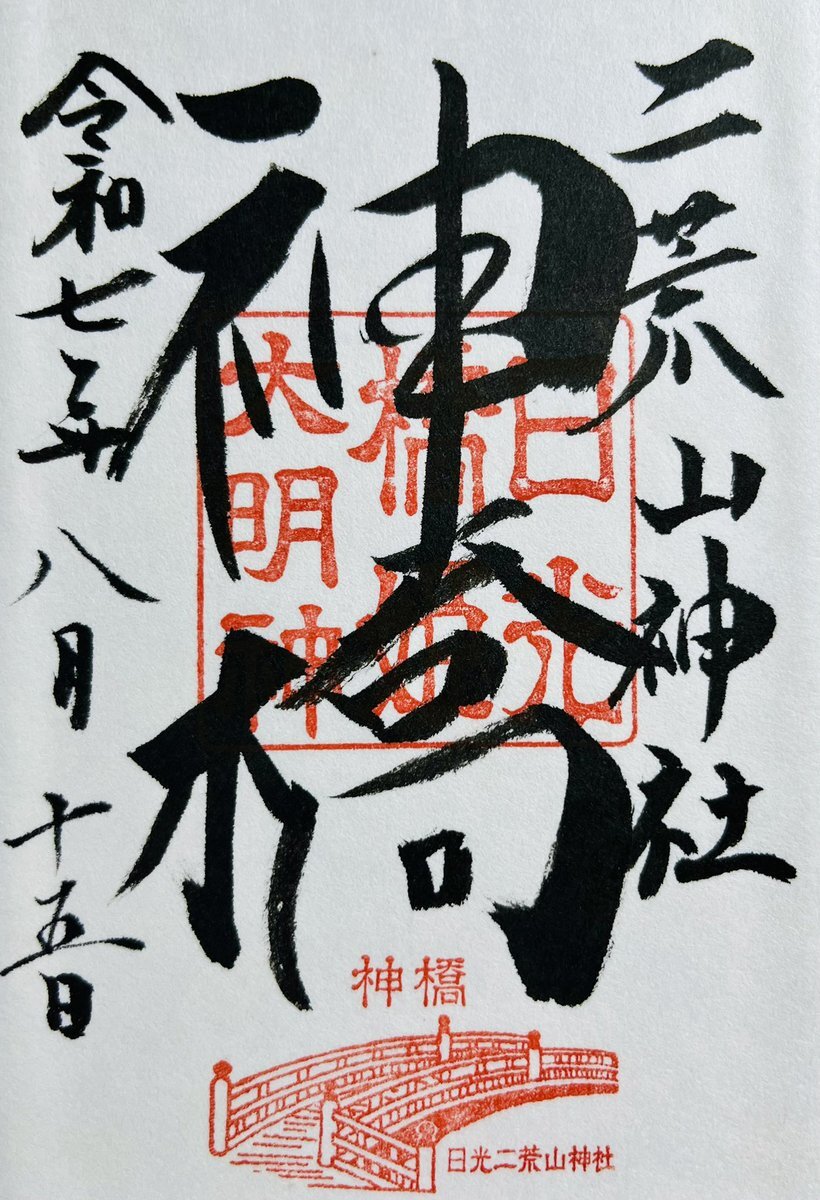 二荒山神社
神橋
日光
橋姫
大明神
令和七年八月十五日
神橋
日光二荒山神社